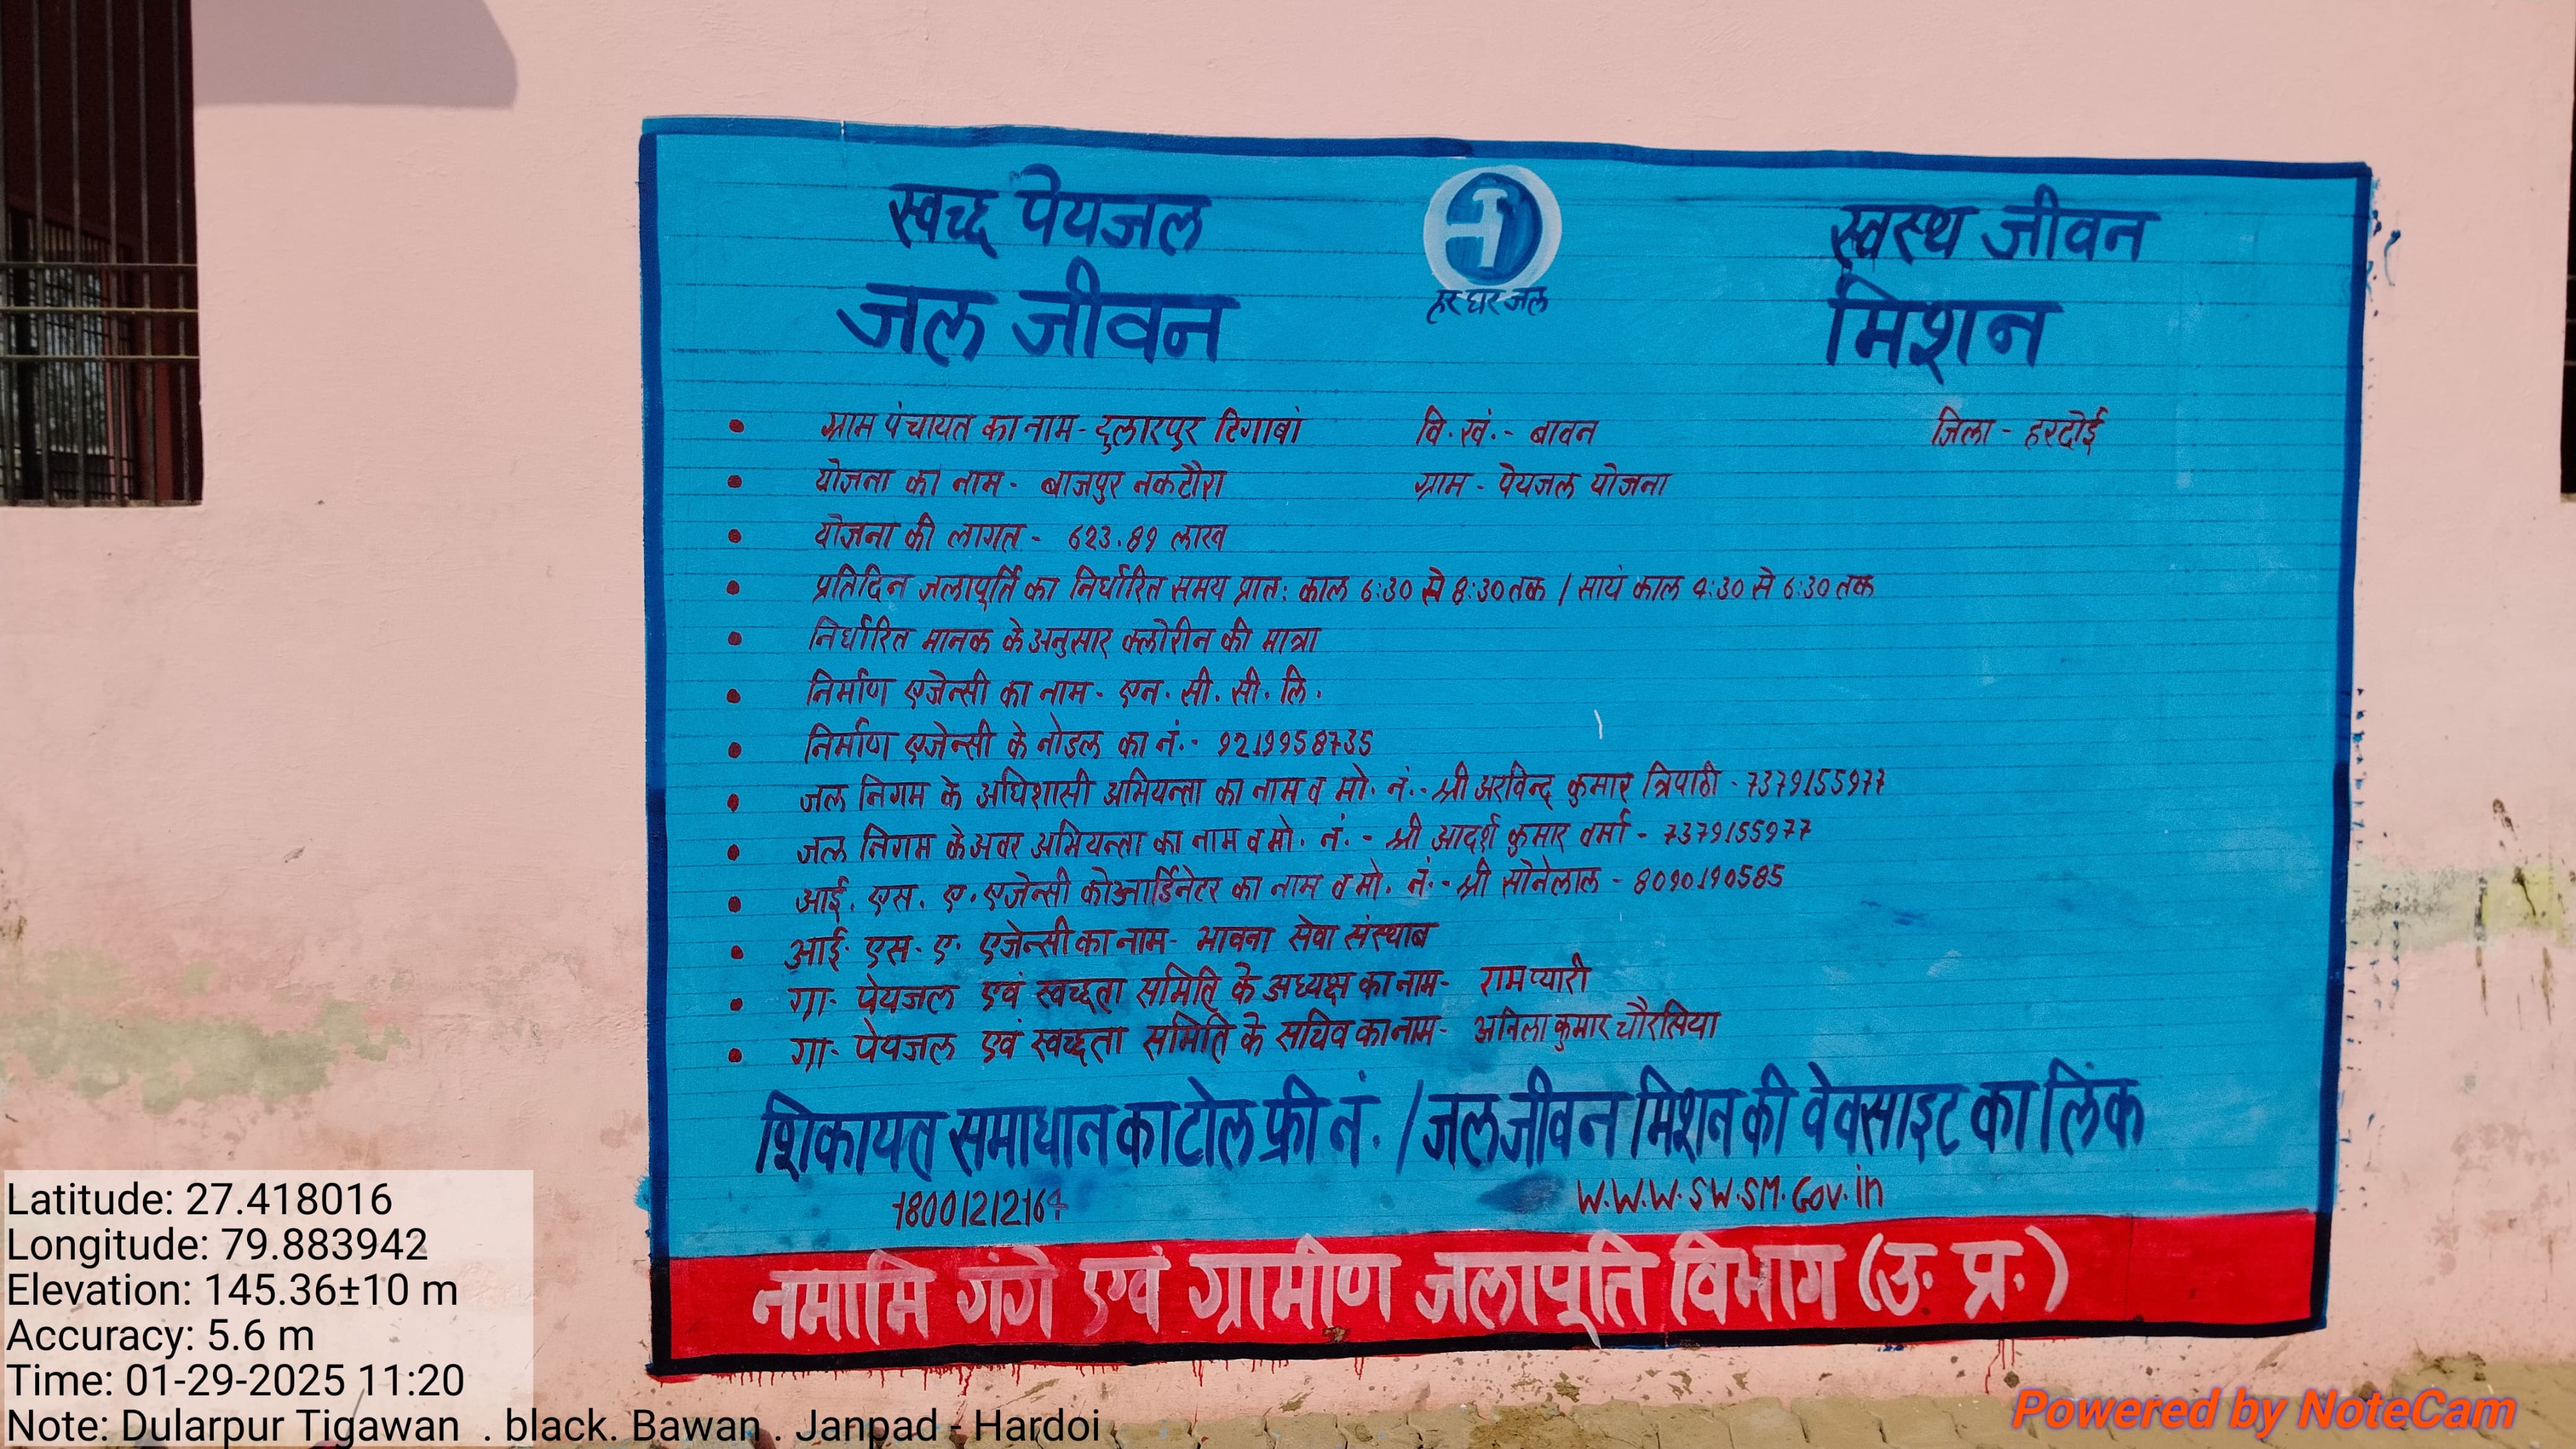 स्वच्छ पेयजल
स्वस्थ जीवन
हर घर जल
जल जीवन मिशन
• ग्राम पंचायत का नाम- दुलारपुर टिगावां वि.खं.- बावन जिला - हरदोई
• योजना का नाम- बाजपुर नकटौरा ग्राम - पेयजल योजना
• योजना की लागत - 623.89 लाख
• प्रतिदिन जलापूर्ति का निर्धारित समय प्रात: काल 6:30 से 8:30 तक / सायं काल 4:30 से 6:30 तक
• निर्धारित मानक के अनुसार क्लोरीन की मात्रा
• निर्माण एजेन्सी का नाम- एन. सी. सी. लि.
• निर्माण एजेन्सी के नोडल का नं.- 9219958735
• जल निगम के अधिशासी अभियन्ता का नाम व मो. नं.- श्री अरविन्द कुमार त्रिपाठी - 7379155977
• जल निगम के अवर अभियन्ता का नाम व मो. नं. - श्री आदर्श कुमार वर्मा - 7379155977
• आई. एस. ए. एजेन्सी कोआर्डिनेटर का नाम व मो. नं.- श्री सोनेलाल - 8090190585
• आई. एस. ए. एजेन्सी का नाम- भावना सेवा संस्थाब
• ग्रा- पेयजल एवं स्वच्छता समिति के अध्यक्ष का नाम- रामप्यारी
• ग्रा- पेयजल एवं स्वच्छता समिति के सचिव का नाम- अनिला कुमार चौरसिया
शिकायत समाधान का टोल फ्री नं. / जल जीवन मिशन की वेवसाइट का लिंक
18001212164 W.W.W.SW.SM.Gov.in
नमामि गंगे एवं ग्रामीण जलापूति विभाग (उ. प्र.)
Latitude: 27.418016
Longitude: 79.883942
Elevation: 145.36±10 m
Accuracy: 5.6 m
Time: 01-29-2025 11:20
Note: Dularpur Tigawan . black. Bawan . Janpad - Hardoi
Powered by NoteCam